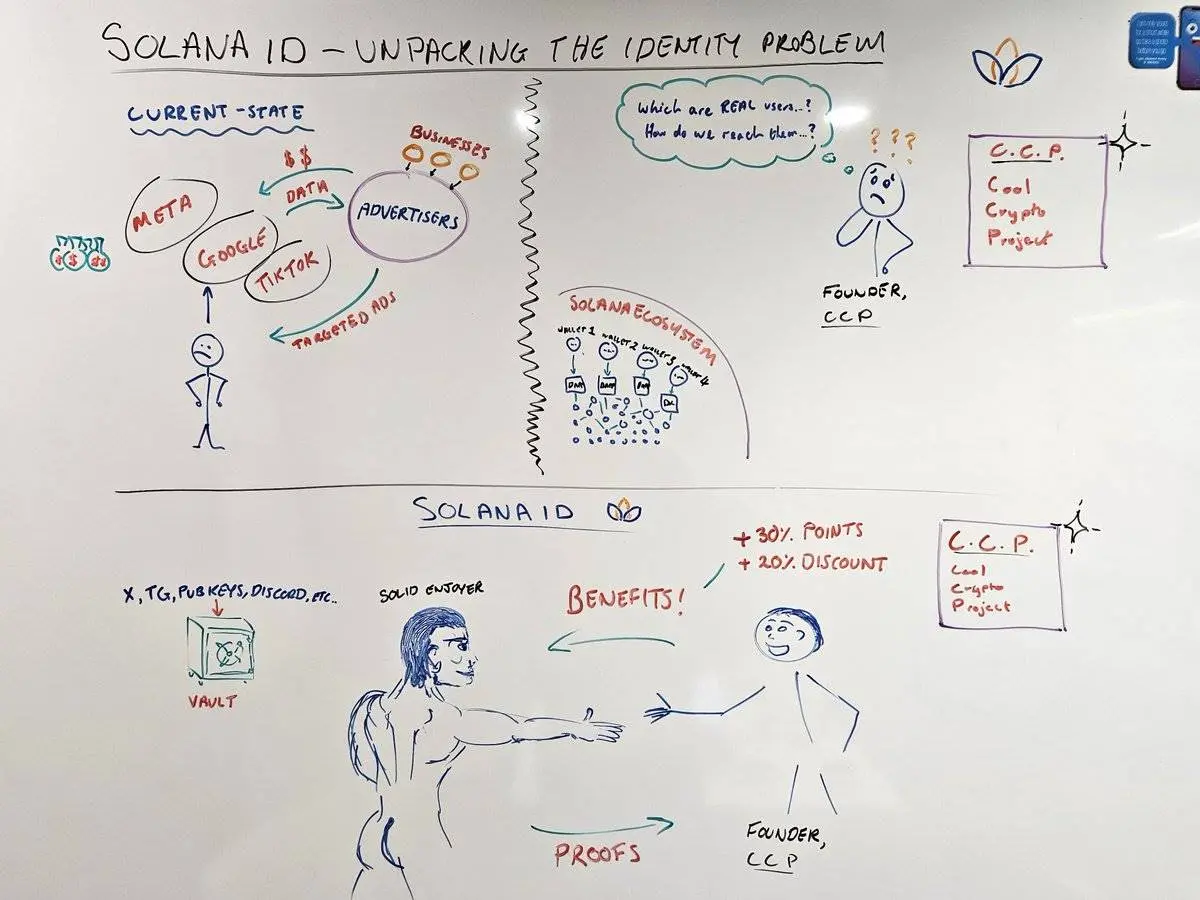 SOLANA ID – UNPACKING THE IDENTITY PROBLEM
CURRENT-STATE
BUSINESSES
$ $
DATA
META
GOOGLE
TIKTOK
ADVERTISERS
$ $ $$
TARGETED ADS
which are REAL users..?
How do we reach them..?
? ? ?
C.C.P.
Cool
Crypto
Project
FOUNDER,
CCP
SOLANA ECOSYSTEM
WALLET 1
WALLET 2
WALLET 3
WALLET 4
SOLANA ID
+ 30% POINTS
+ 20% DISCOUNT
C.C.P.
Cool
Crypto
Project
X, TG, PUBKEYS, DISCORD, ETC..
SOLID ENJOYER
BENEFITS!
VAULT
PROOFS
FOUNDER,
CCP